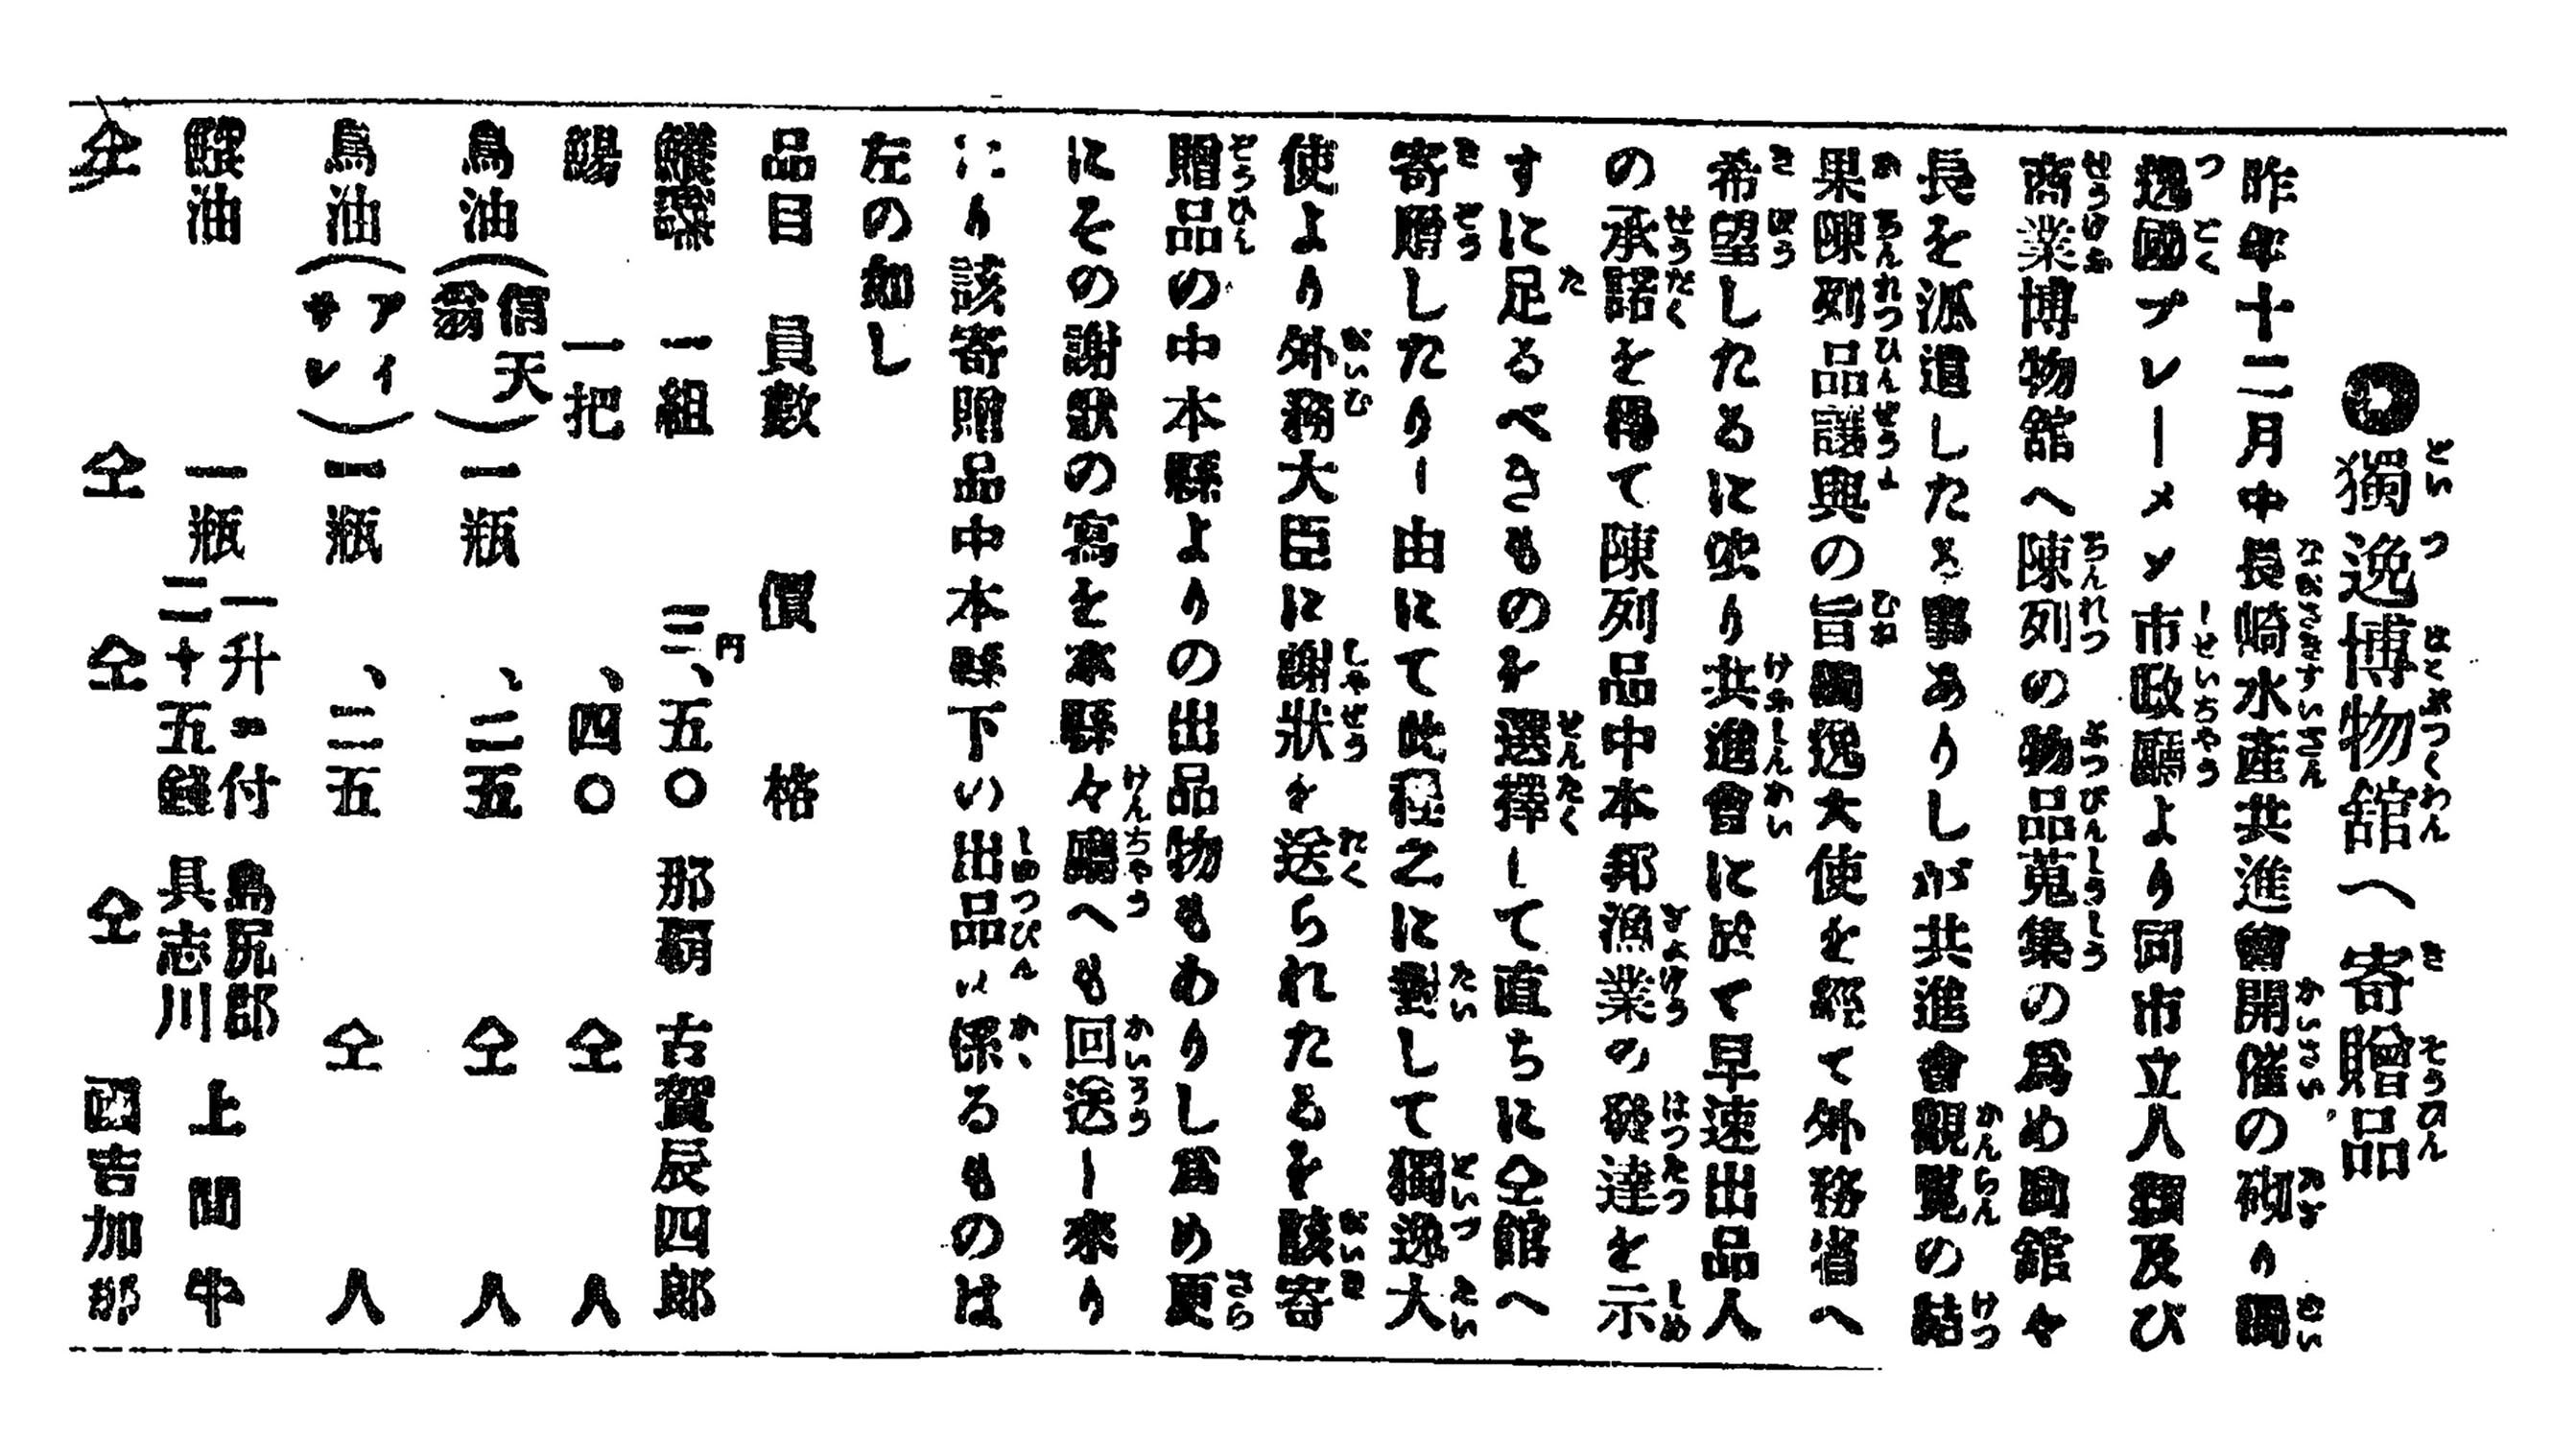 ◎獨逸博物舘へ寄贈品
昨年十二月中長崎水産共進會開催の砌り獨
逸國ブレーメン市政廳より同市立人類及び
商業博物舘へ陳列の物品蒐集の爲め同舘々
長を派遣したる事ありしが共進會觀覧の結
果陳列品讓與の旨獨逸大使を經て外務省へ
希望したるに依り共進會に於て早速出品人
の承諾を得て陳列品中本邦漁業の發達を示
すに足るべきものを選擇して直ちに仝舘へ
寄贈したりし由にて此程之に對して獨逸大
使より外務大臣に謝狀を送られたるを該寄
贈品の中本縣よりの出品物もありし爲め更
にその謝狀の寫を本縣々廳へも回送し來り
にり該寄贈品中本縣下の出品に係るものは
左の如し
品目 員數 價格
一組 三円、五〇 那覇 古賀辰四郎
一把 、四〇 仝 人
鳥油（信天翁） 一瓶 、二五 仝 人
鳥油（アイサレ） 一瓶 、二五 仝 人
油 一瓶 一升ニ付二十五錢 島尻郡具志川 上間牛
仝 仝 仝 仝 國吉加那